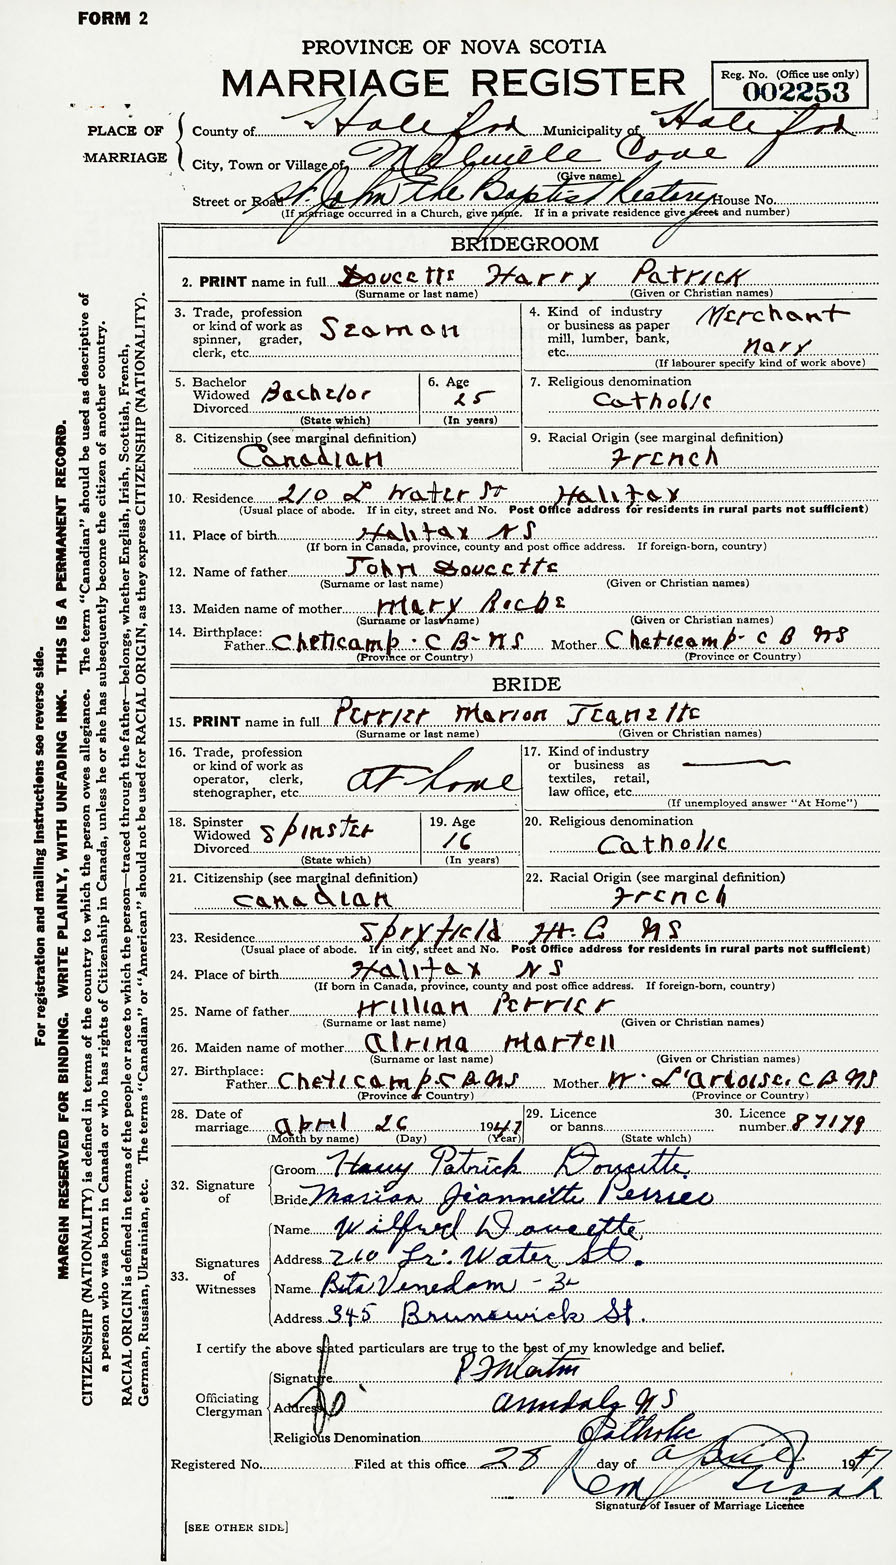 FORM 2
PROVINCE OF NOVA SCOTIA
MARRIAGE REGISTER
Reg. No. (Office use only)
002253
PLACE OF MARRIAGE
County of Halifax Municipality of Halifax
City, Town or Village of Melville Cove
(Give name)
Street or Road St. John The Baptist Rectory House No.
(If marriage occurred in a Church, give name. If in a private residence give street and number)
BRIDEGROOM
2. PRINT name in full Doucette Harry Patrick
(Surname or last name) (Given or Christian names)
3. Trade, profession or kind of work as spinner, grader, clerk, etc. Seaman
4. Kind of industry or business as paper mill, lumber, bank, etc. Merchant Navy
(If labourer specify kind of work above)
5. Bachelor Widowed Divorced Bachelor
(State which)
6. Age 25
(In years)
7. Religious denomination
Catholic
8. Citizenship (see marginal definition)
Canadian
9. Racial Origin (see marginal definition)
French
10. Residence 210 L Water St Halifax
(Usual place of abode. If in city, street and No. Post Office address for residents in rural parts not sufficient)
11. Place of birth Halifax NS
(If born in Canada, province, county and post office address. If foreign-born, country)
12. Name of father John Doucette
(Surname or last name) (Given or Christian names)
13. Maiden name of mother Mary
(Surname or last name) (Given or Christian names)
14. Birthplace:
Father Cheticamp · C B - NS Mother Cheticamp - C B NS
(Province or Country) (Province or Country)
BRIDE
15. PRINT name in full Perrier Marion Jeanette
(Surname or last name) (Given or Christian names)
16. Trade, profession or kind of work as operator, clerk, stenographer, etc. at home
17. Kind of industry or business as textiles, retail, law office, etc. —
(If unemployed answer "At Home")
18. Spinster Widowed Divorced Spinster
(State which)
19. Age 16
(In years)
20. Religious denomination
Catholic
21. Citizenship (see marginal definition)
Canadian
22. Racial Origin (see marginal definition)
French
23. Residence Spryfield Hx. C NS
(Usual place of abode. If in city, street and No. Post Office address for residents in rural parts not sufficient)
24. Place of birth Halifax NS
(If born in Canada, province, county and post office address. If foreign-born, country)
25. Name of father William Perrier
(Surname or last name) (Given or Christian names)
26. Maiden name of mother Martell
(Surname or last name) (Given or Christian names)
27. Birthplace:
Father Cheticamp. C B NS Mother W. L'Ardoise. C B NS
(Province or Country) (Province or Country)
28. Date of marriage April 26 1947
(Month by name) (Day) (Year)
29. Licence or banns
(State which)
30. Licence number 87179
32. Signature of
Groom Harry Patrick Doucette
Bride Marion Jeannette Perrier
33. Signatures of Witnesses
Name Wilfred Doucette
Address 210 Lr. Water St.
Name
Address 345 Brunswick St.
I certify the above stated particulars are true to the best of my knowledge and belief.
Officiating Clergyman
Signature P F Martin
Address Armdale NS
Religious Denomination Catholic
Registered No. Filed at this office 28 day of April 1947
Signature of Issuer of Marriage Licence
[SEE OTHER SIDE]
For registration and mailing instructions see reverse side.
MARGIN RESERVED FOR BINDING. WRITE PLAINLY, WITH UNFADING INK. THIS IS A PERMANENT RECORD.
CITIZENSHIP (NATIONALITY) is defined in terms of the country to which the person owes allegiance. The term "Canadian" should be used as descriptive of
a person who was born in Canada or who has rights of Citizenship in Canada, unless he or she has subsequently become the citizen of another country.
RACIAL ORIGIN is defined in terms of the people or race to which the person—traced through the father—belongs, whether English, Irish, Scottish, French,
German, Russian, Ukrainian, etc. The terms "Canadian" or "American" should not be used for RACIAL ORIGIN, as they express CITIZENSHIP (NATIONALITY).